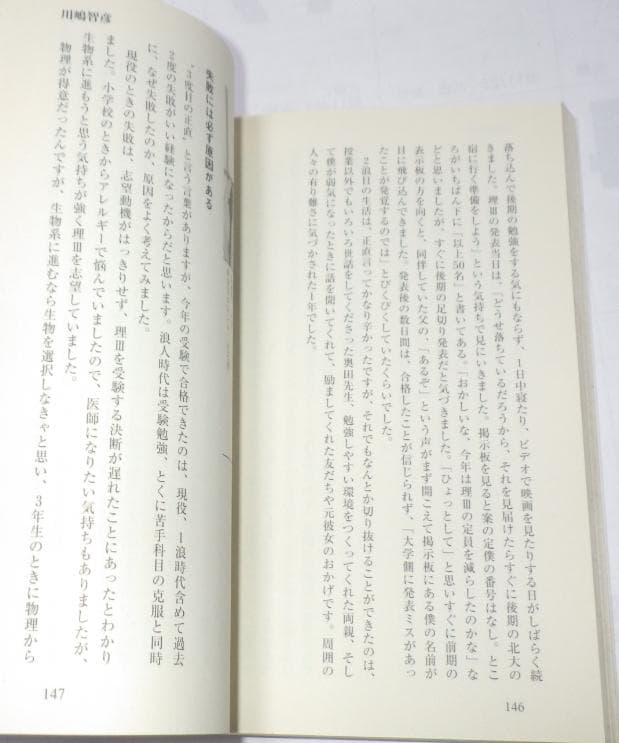 落ち込んで後期の勉強をする気にもならず、1日中寝たり、ビデオで映画を見たりする日がしばらく続
きました。理Ⅲの発表当日は、「どうせ落ちているだろうから、それを見届けたらすぐに後期の北大の
宿に行く準備をしよう」という気持ちで見にいきました。掲示板を見ると案の定僕の番号はなし。とこ
ろがいちばん下に「以上50名」と書いてある。「おかしいな、今年は理Ⅲの定員を減らしたのかな」な
どと思いましたが、すぐに後期の足切り発表だと気づきました。「ひょっとして」と思いすぐに前期の
表示板の方を向くと、同伴していた父の、「あるぞ」という声がまず聞こえて掲示板にある僕の名前が
目に飛び込んできました。発表後の数日間は、合格したことが信じられず、「大学側に発表ミスがあっ
たことが発覚するのでは」とびくびくしていたくらいでした。
2浪目の生活は、正直言ってかなり辛かったですが、それでもなんとか切り抜けることができたのは、
授業以外でもいろいろ世話をしてくださった奥田先生、勉強しやすい環境をつくってくれた両親、そし
て僕が弱気になったときに話を聞いてくれて、励ましてくれた友だちや元彼女のおかげです。周囲の
人々の有り難さに気づかされた1年でした。
146
川嶋智彦
失敗には必ず原因がある
"3度目の正直"と言う言葉がありますが、今年の受験で合格できたのは、現役、1浪時代含めて過去
2度の失敗がいい経験になったからだと思います。浪人時代は受験勉強、とくに苦手科目の克服と同時
に、なぜ失敗したのか、原因をよく考えてみました。
現役のときの失敗は、志望動機がはっきりせず、理Ⅲを受験する決断が遅れたことにあったとわかり
ました。小学校のときからアレルギーで悩んでいましたので、医師になりたい気持ちもありましたが、
生物系に進もうと思う気持ちが強く理Ⅱを志望していました。
物理が得意だったんですが、生物系に進むなら生物を選択しなきゃと思い、3年生のときに物理から
147